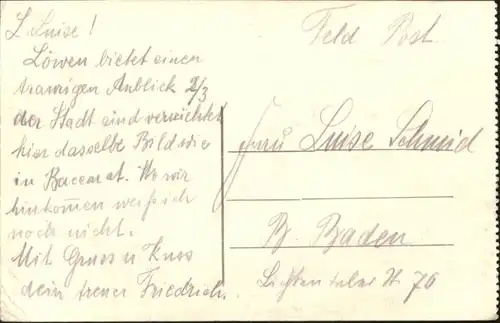 L. Luise!
Löwen bietet einen
traurigen Anblick 2/3
der Stadt sind vernichtet
hier dasselbe Bild wie
in Baccarat. Wo wir
hinkom̅en weiß ich
noch nicht.
Mit Gruss u Kuss
dein treuer Friedrich.
Feld Post.
Frau Luise Schmid
B. Baden
Lichtentaler St 76